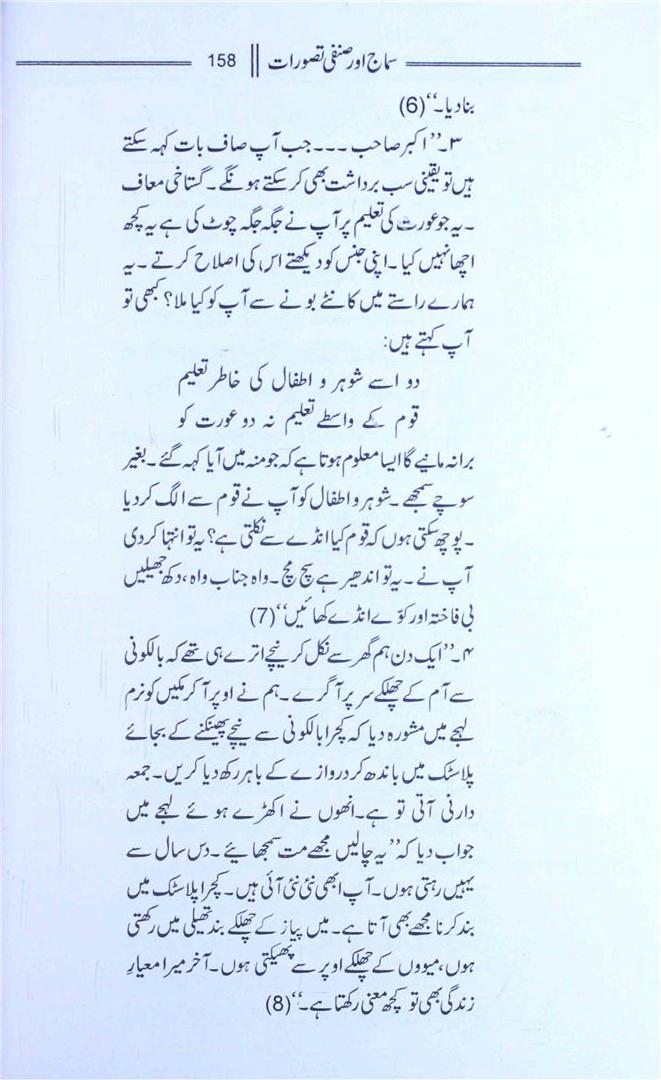 سماج اور صنفی تصورات || 158
بنا دیا۔‘‘(6)
۳۔’’اکبر صاحب ۔۔۔ جب آپ صاف بات کہہ سکتے
ہیں تو یقینی سب برداشت بھی کر سکتے ہونگے۔ گستاخی معاف
۔یہ جو عورت کی تعلیم پر آپ نے جگہ جگہ چوٹ کی ہے یہ کچھ
اچھا نہیں کیا۔ اپنی جنس کو دیکھتے اس کی اصلاح کرتے ۔ یہ
ہمارے راستے میں کانٹے بونے سے آپ کو کیا ملا؟ کبھی تو
آپ کہتے ہیں:
دو اسے شوہر و اطفال کی خاطر تعلیم
قوم کے واسطے تعلیم نہ دو عورت کو
برا نہ مانیے گا ایسا معلوم ہوتا ہے کہ جو منہ میں آیا کہہ گئے۔ بغیر
سوچے سمجھے۔ شوہر و اطفال کو آپ نے قوم سے الگ کر دیا
۔ پوچھ سکتی ہوں کہ قوم کیا انڈے سے نکلتی ہے؟ یہ تو انتہا کر دی
آپ نے ۔ یہ تو اندھیر ہے سچ مچ۔ واہ جناب واہ، دکھ جھیلیں
بی فاختہ اور کوّے انڈے کھائیں‘‘(7)
۴۔’’ایک دن ہم گھر سے نکل کر نیچے اترے ہی تھے کہ بالکونی
سے آم کے چھلکے سر پر آ گرے۔ ہم نے اوپر آ کر مکیں کو نرم
لہجے میں مشورہ دیا کہ کچرا بالکونی سے نیچے پھینکنے کے بجائے
پلاسٹک میں باندھ کر دروازے کے باہر رکھ دیا کریں۔ جمعہ
دارنی آتی تو ہے۔انھوں نے اکھڑے ہوئے لہجے میں
جواب دیا کہ’’ یہ چالیں مجھے مت سمجھائیے۔ دس سال سے
یہیں رہتی ہوں۔ آپ ابھی نئی نئی آئی ہیں۔ کچرا پلاسٹک میں
بند کرنا مجھے بھی آتا ہے۔ میں پیاز کے چھلکے بند تھیلی میں رکھتی
ہوں، میووں کے چھلکے اوپر سے پھیکتی ہوں۔ آخر میرا معیارِ
زندگی بھی تو کچھ معنی رکھتا ہے۔‘‘(8)